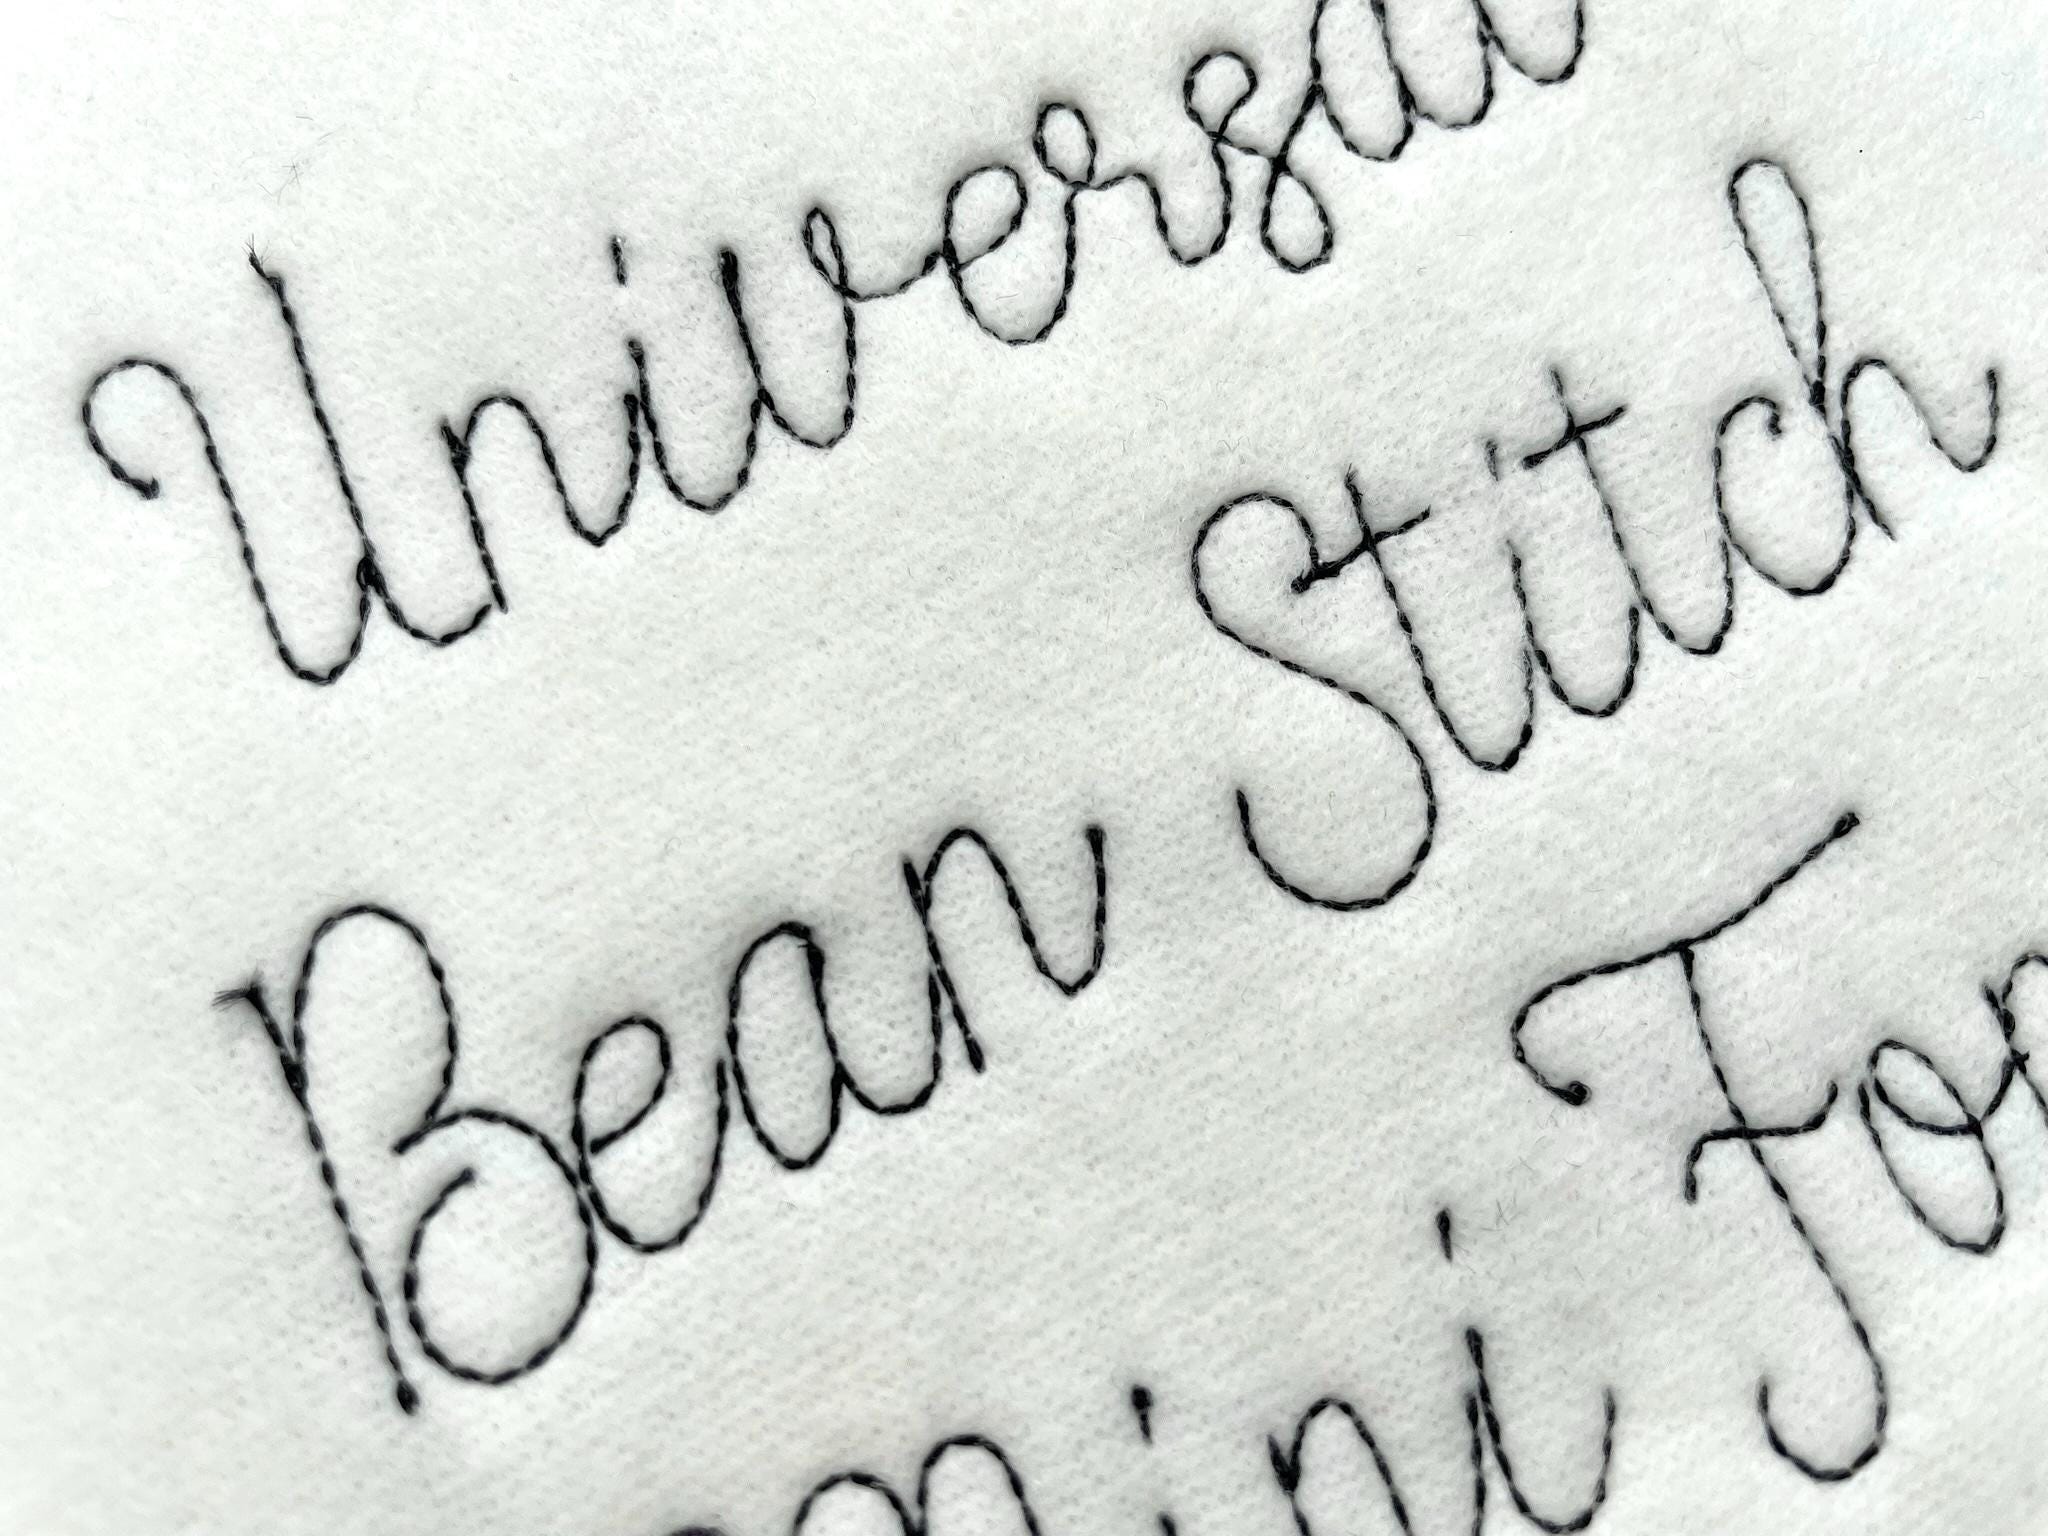 Universal
Bean Stitch
mini Fon